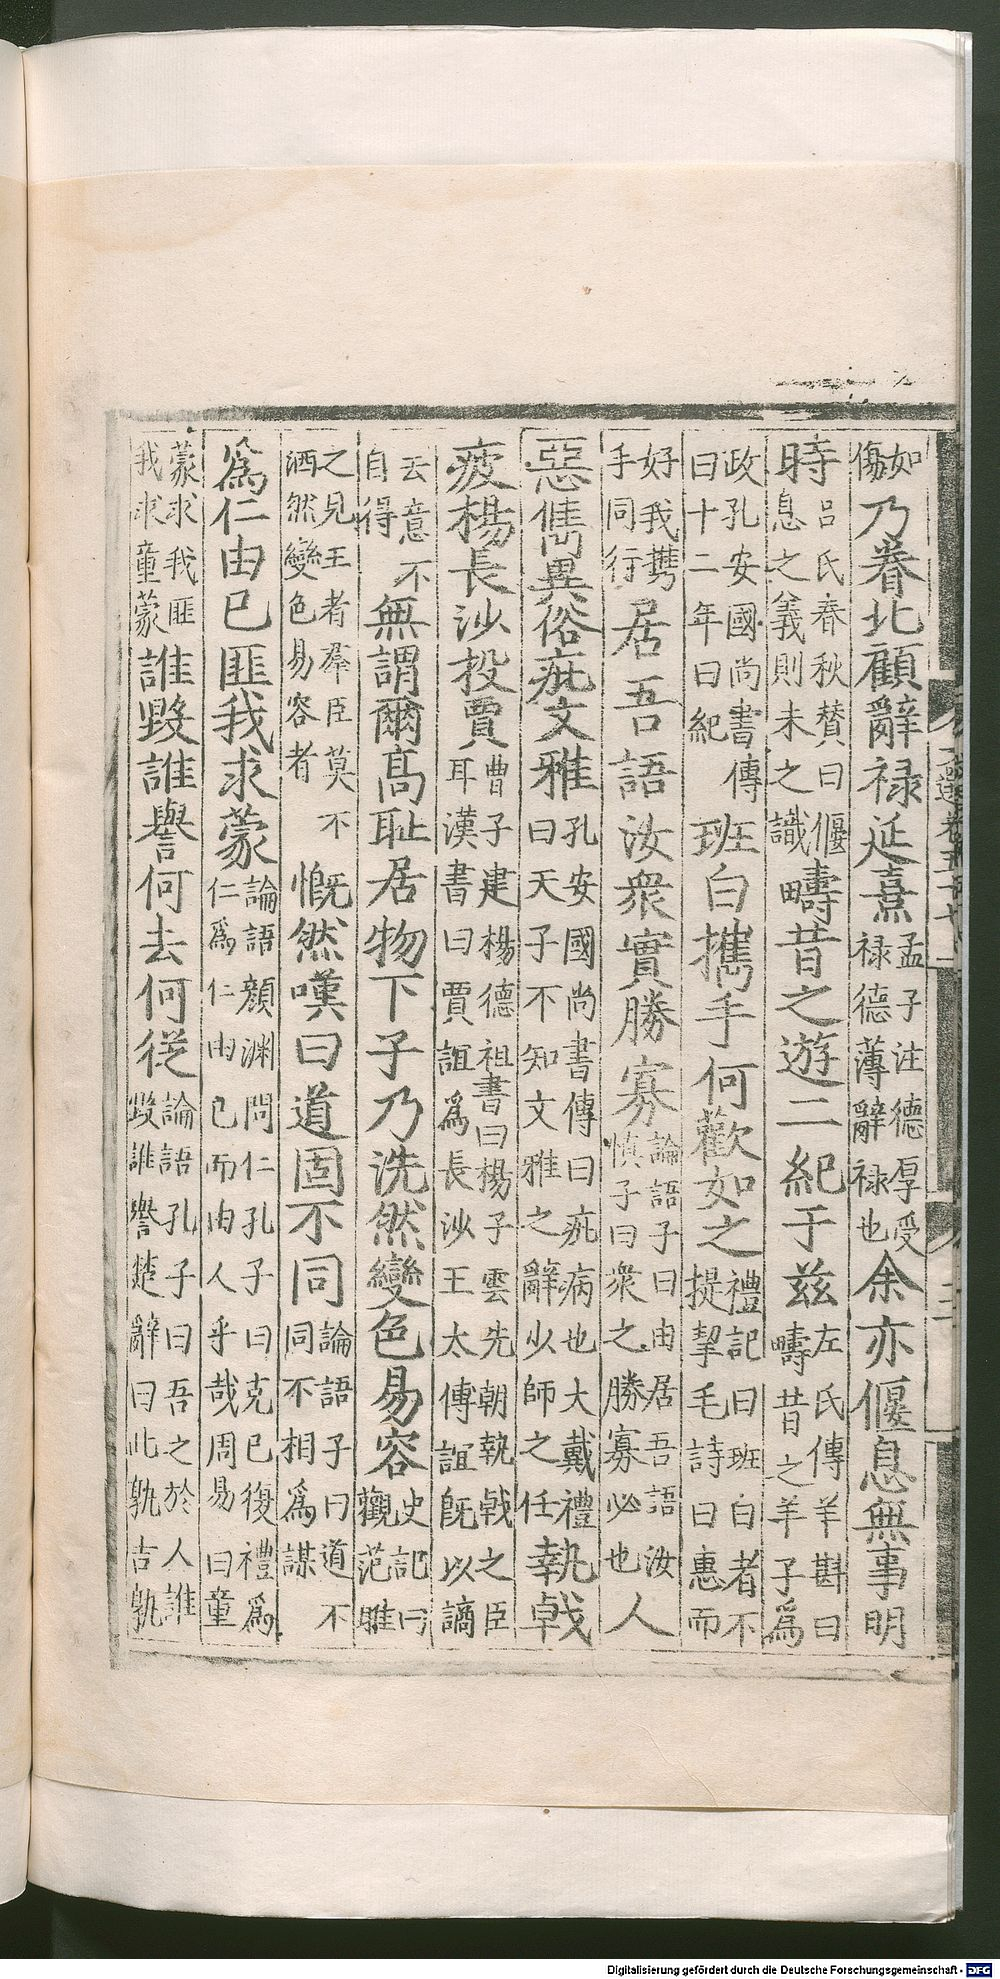 如傷乃眷北顧辭禄延熹孟子注德厚受禄德薄辭禄也余亦偃息無事明
時吕氏春秋賛曰偃息之義則未之識疇昔之遊二紀于兹左氏傳羊斟曰疇昔之羊子爲
政孔安國尚書傳曰十二年曰紀班白攜手何歡如之禮記曰班白者不提挈毛詩曰惠而
好我携手同行居吾語汝衆實勝寡論語子曰由居吾語汝慎子曰衆之勝寡必也人
惡儁異俗疵文雅孔安國尚書傳曰疵病也大戴禮曰天子不知文雅之辭少師之任執戟
疲楊長沙投賈曹子建楊德祖書曰楊子雲先朝執戟之臣耳漢書曰賈誼爲長沙王太傅誼旣以謫
去意不自得無謂爾高耻居物下子乃洗然變色易容史記曰觀范睢
之見王者羣臣莫不洒然變色易容者慨然嘆曰道固不同論語子曰道不同不相爲謀
爲仁由已匪我求蒙論語顔淵問仁孔子曰克已復禮爲仁爲仁由已而由人乎哉周易曰童
蒙求我匪我求童蒙誰毀誰譽何去何從論語孔子曰吾之於人誰毀誰譽楚辭曰此孰吉孰
Digitalisierung gefördert durch die Deutsche Forschungsgemeinschaft - DFG